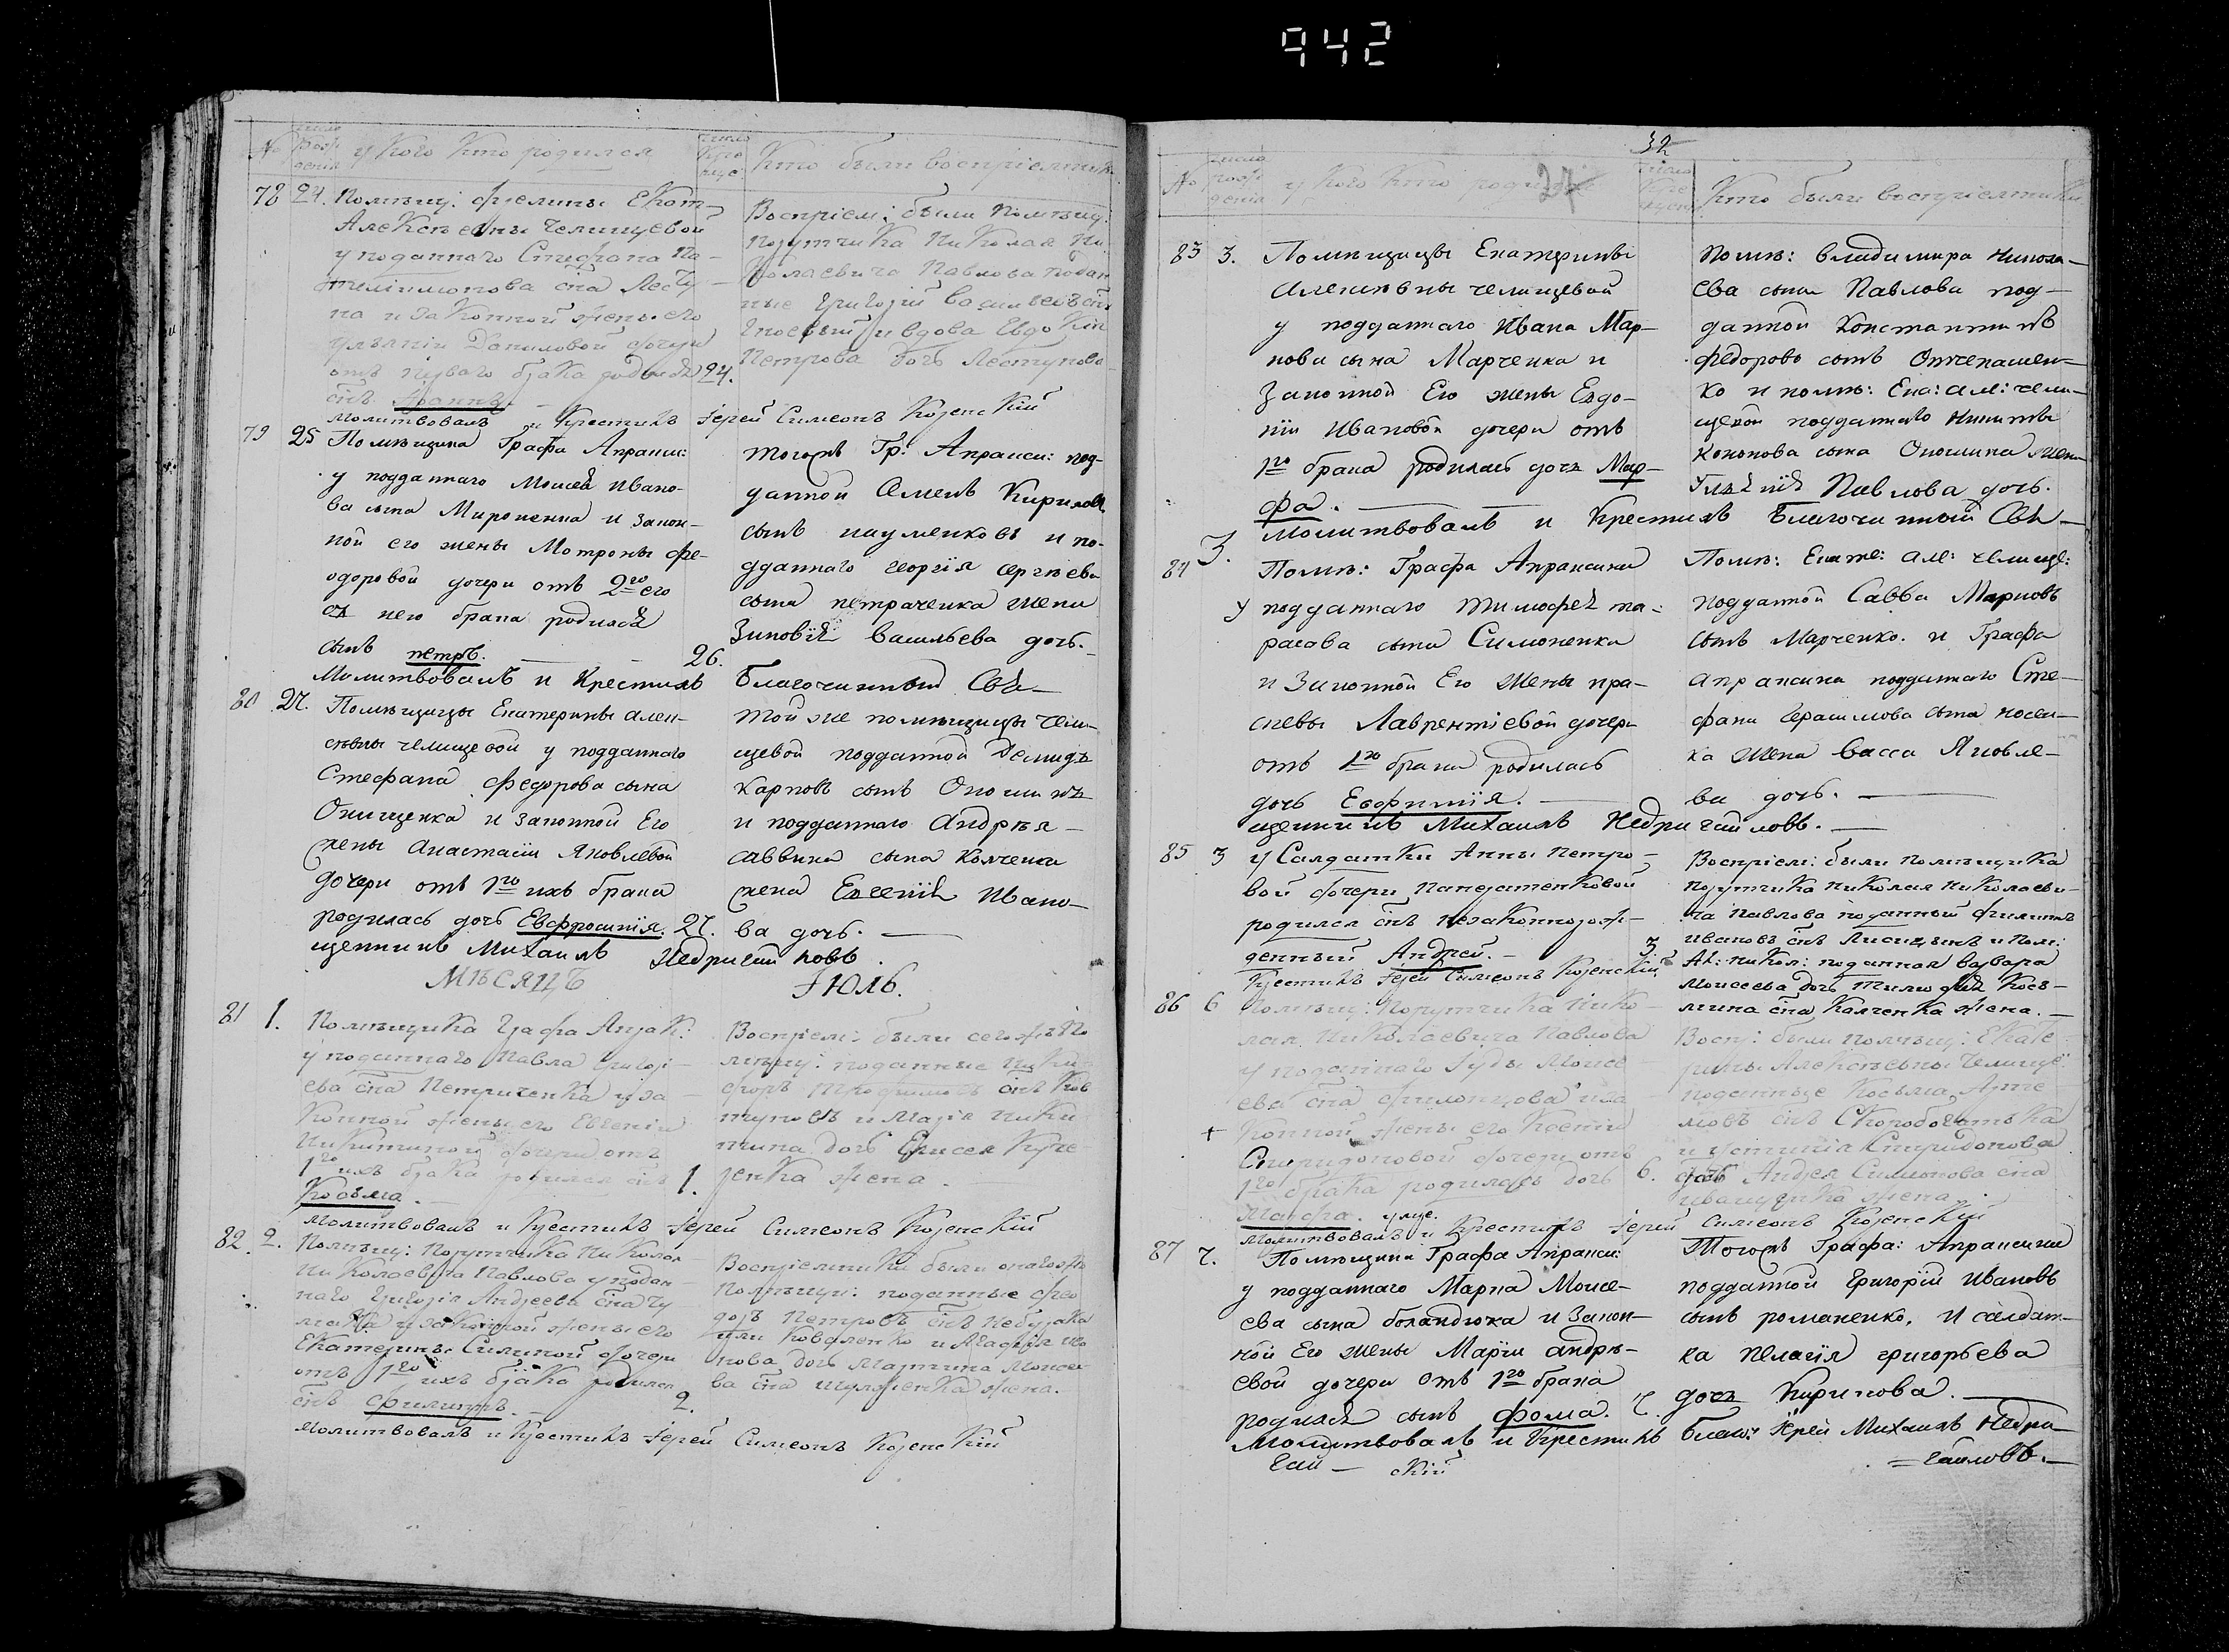 942
№
число
рож
денія
у кого кто родился
число
кре
ще
кто были воспріемник
78 24. Помѣщ: фрелины Екат
Алексѣевны Челищевой
у поданнаго Стефана Па
на и законной жены его
Даниловой дочери
отъ перваго брака родился 24.
снъ Іоаннъ.
Воспріем: были помѣщ:
порутчика Николая Ни
колаевича Павлова подан
ные Григорій Васильевъ снъ
и вдова Евдокія
Петрова дочь
молитвовалъ и крестилъ Іерей Симеонъ Козенскій
79 25 Помѣщика Графа Апракси:
у подданнаго Моисея Ивано-
ва сына Мироненка и закон-
ной его жены Мотроны фе-
одоровой дочери отъ 2го его
съ нею брака родился
сынъ петръ. 26.
тогожъ Гр: Апракси: под-
данной Семенъ Кириловъ
сынъ науменковъ и по-
дданнаго георгія сергѣева
сына петраченка жена
Зиновія васильева дочь.
Молитвовалъ и Крестилъ Благочинный Свя-
80 27. Помѣщицы Екатерины алек-
сѣевны челищевой у подданнаго
Стефана федорова сына
Онищенка и законной Его
жены анастасіи Яковлевой
дочери отъ 1го ихъ брака
родилась дочь Евфросинія. 27.
той же помѣщицы чели-
щевой подданной Демидъ
карповъ сынъ
и подданнаго андрѣя
саввина сына колченка
жена Евгенія Ивано-
ва дочь.
щенникъ Михаилъ Недригайловъ.
МѢСЯЦЪ Іюль.
81 1. Помѣщика Графа Апрак:
у поданнаго Павла григорі-
ева сна Петриченка и за
конной жены его Евгеніи
Никитиной дочери отъ
1го ихъ брака родился снъ 1.
Косьма.
Воспріем: были сегожъ По
мѣщ: поданные Ники
форъ Трофимовъ снъ Ков
туновъ и Марія Ники
тина дочь Елисея Куче
ренка жена.
молитвовалъ и крестилъ Іерей Симеонъ Козенскій
82. 2. Помѣщ: Порутчика Николая
Николаевича Павлова у подан
наго Григорія Андреева сна Чу
мака и законной жены его
Екатерины Силиной дочери
отъ 1го ихъ брака родился
снъ филиппъ. 2.
Воспріемники были онагожъ
Помѣщи: поданные фео
доръ Петровъ снъ
или коваленко и Агафія
нова дочь Мартина Моисее
ва сна жена.
молитвовалъ и крестилъ Іерей Симеонъ Козенскій
32
27
№
число
рож
денія
у кого кто родился
число
кре
щен
Кто были воспріемники
83 3. Помѣщицы Екатерины
алексѣевны челищевой
у подданнаго Ивана Мар-
кова сына Марченка и
Законной Его жены Евдо-
кіи Ивановой дочери отъ
1го брака родилась дочь Мар-
фа. 3.
Помѣ: владимира Никола-
ева сына Павлова под-
данной Константинъ
федоровъ сынъ Отченашен-
ко и помѣ: Ека: ал: чели-
щевой подданнаго Никиты
Кононова сына жена
Павлова дочь.
Молитвовалъ и Крестилъ Благочинный Свя-
84 Помѣ: Графа Апраксина
у подданнаго тимофея та-
расова сына Симоненка
и Законной Его жены пра-
сковы Лаврентіевой дочери
отъ 1го брака родилась
дочь Евфимія.
Помѣ: Екате: але: челище:
подданной Савва Марковъ
сынъ Марченко. и Графа
апраксина подданнаго Сте-
фана Герасимова сына
ка жена васса Яковле-
ва дочь.
щенникъ Михаилъ Недригайловъ.
85 3 у Салдатки Анны Петро-
вой дочери
родился снъ незаконнорож-
денный Андрей. 3.
Воспріем: были помѣщика
порутчика Николая Николаеви-
ча Павлова поданный филиппъ
ивановъ снъ Лисицынъ и Пом:
Ал: Никол: поданная варвара
Моисеева дочь Тимофея Кось-
мина сна Калченка жена.
Крестилъ Іерей Симеонъ Козенскій
86 6 Помѣщ: Порутчика Нико-
лая Николаевича Павлова
у поданнаго Іуды Моисе
ева сна Филонцова и за
конной жены его Ксеніи
Спиридоновой дочери отъ
1го брака родилась дочь 6.
Марфа. умре.
Воспр: были помѣщ: Екате
рины Алексѣевны Челище
поданные Косьма Арте
мовъ снъ Скоробогатька
и Устинія Спиридонова
дочь Андрея Симонова сна
иващенка жена.
молитвовалъ и крестилъ Іерей Симеонъ Козенскій
87 7. Помѣщика Графа Апракси:
у подданнаго Марка Моисе-
ева сына боландюка и Закон-
ной Его жены Маріи андрѣ-
евой дочери отъ 1го брака
родился сынъ фома. 7.
Тогожъ Графа: Апраксина
подданной Григорій Ивановъ
сынъ романенко. И салдат-
ка пелагія григорьева
дочь Кирикова.
Молитвовалъ и Крестилъ благоч: Іерей Михаилъ Недри-
гайловъ.
гай - скій